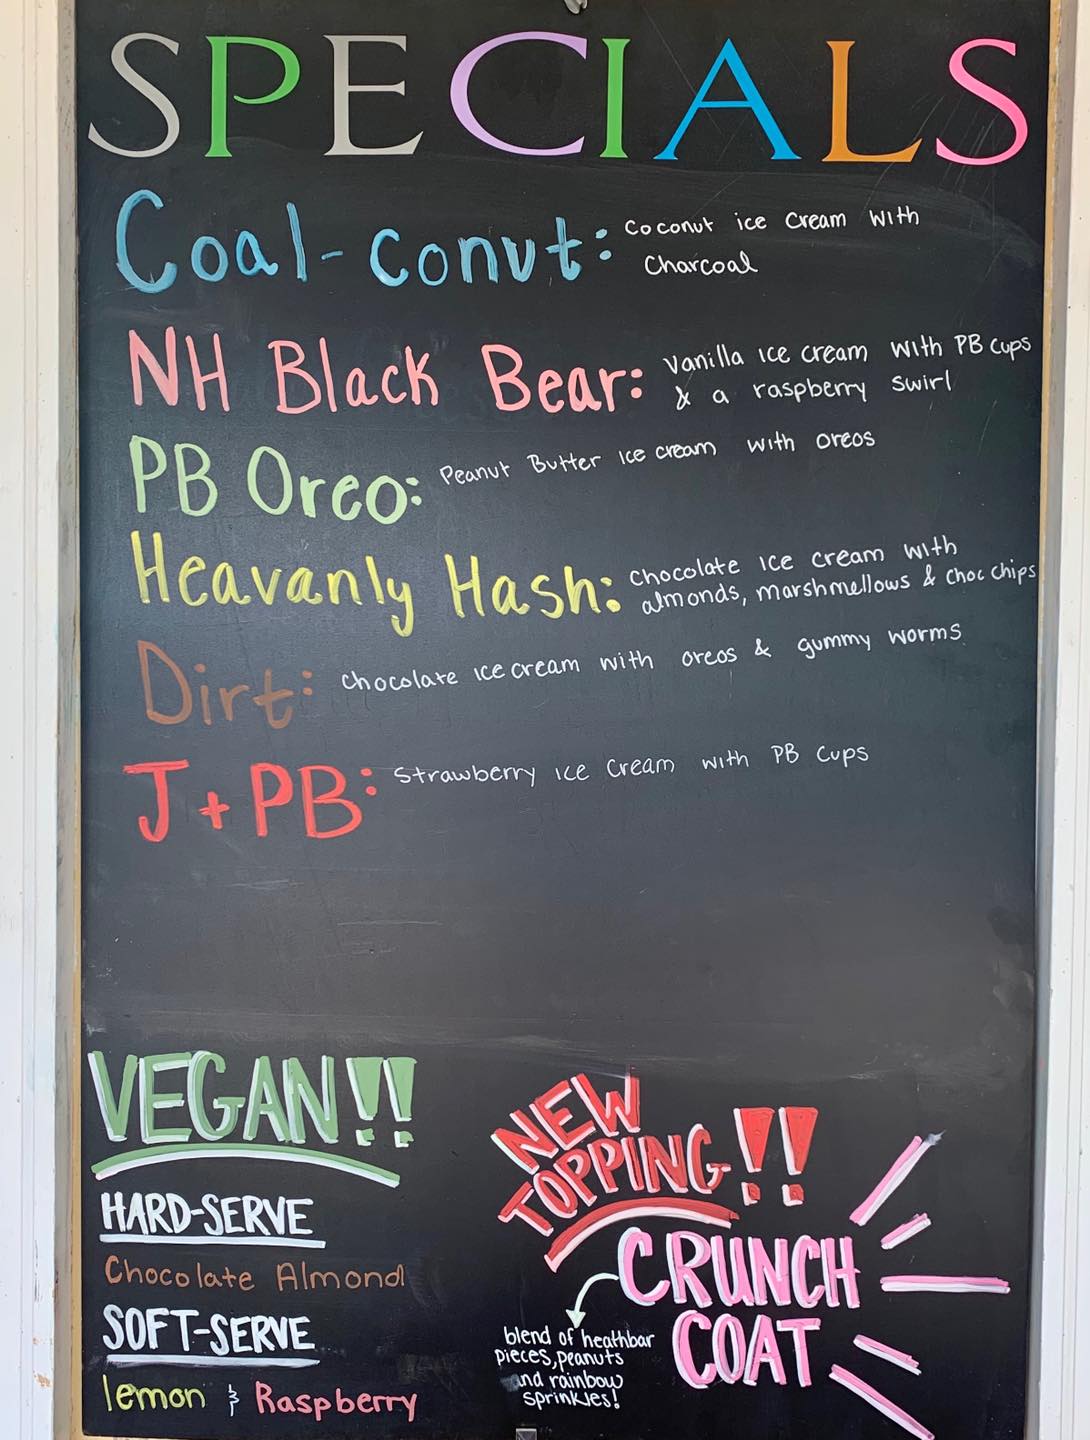 SPECIALS
Coal-conut: Coconut ice cream with
charcoal
NH Black Bear: Vanilla ice cream with PB cups
& a raspberry swirl
PB Oreo: Peanut Butter ice cream with oreos
Heavanly Hash: Chocolate ice cream with
almonds, marshmellows & choc chips
Dirt: Chocolate ice cream with oreos & gummy worms
J+PB: Strawberry ice cream with PB cups
VEGAN!!
HARD-SERVE
Chocolate Almond
SOFT-SERVE
lemon & Raspberry
NEW
TOPPING!!
CRUNCH
COAT
blend of heathbar
pieces, peanuts
and rainbow
sprinkles!